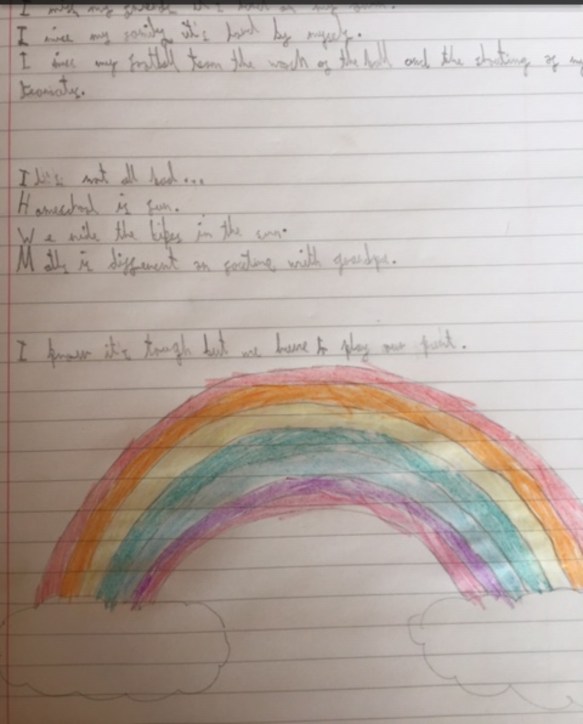 I miss my friends it's
I miss my society it's hard by myself.
I miss my football team the work of the ball and the shouting of my
teamates.
It's not all bad...
Homeschool is fun.
We ride the bikes in the sun.
Maths is different on facetime with grandpa.
I know it's tough but we have to play our part.